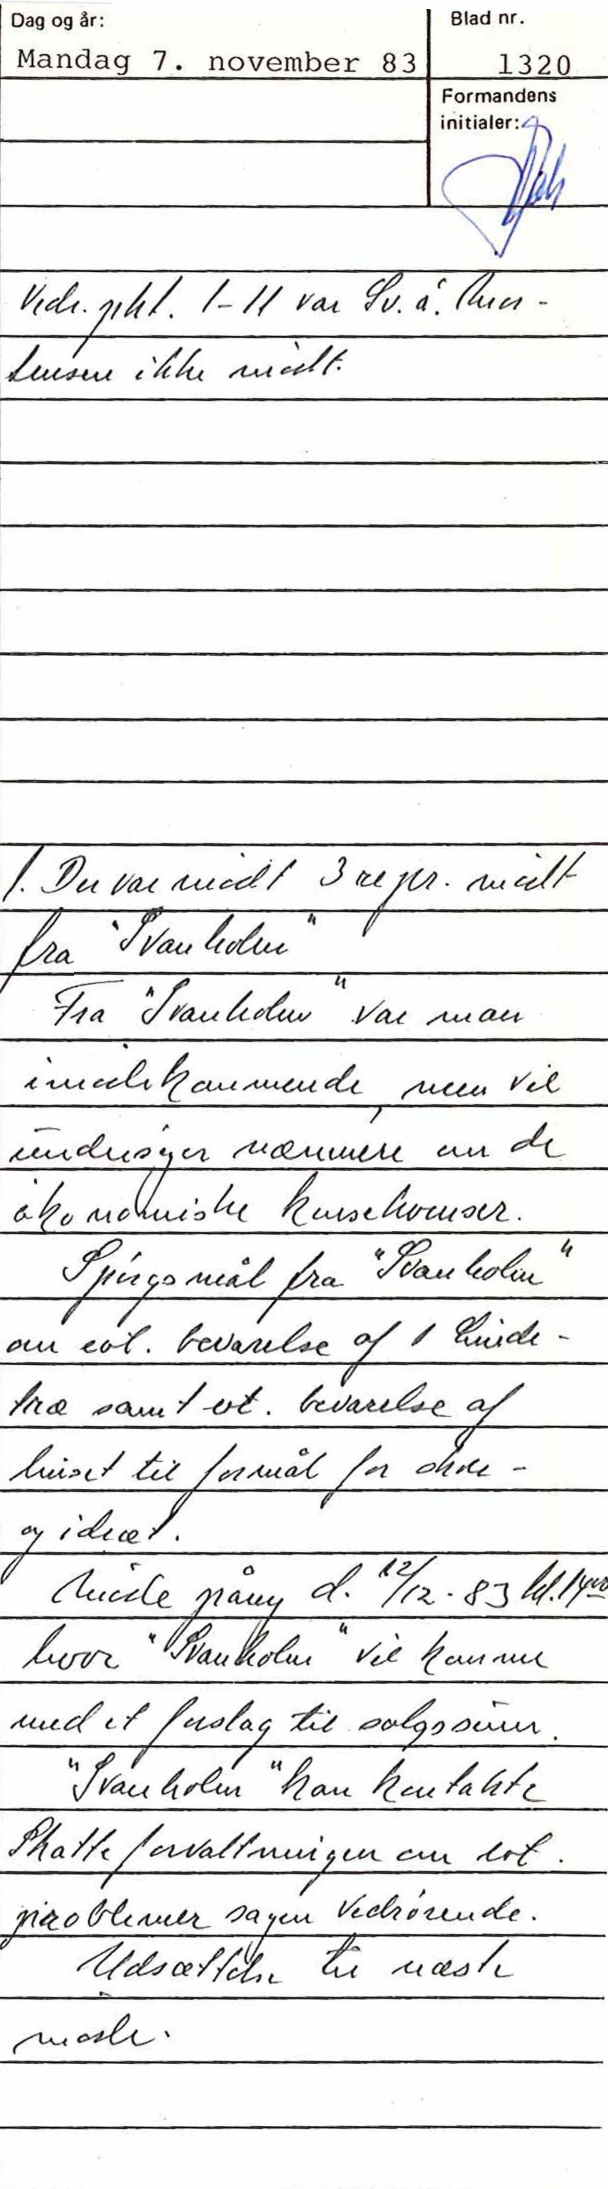 Dag og år:
Blad nr.
Mandag 7. november 83
1320
Formandens
initialer:
Vedr. pkt. 1-11 var Sv. Å. Mor-
tensen ikke mødt.
1. Der var mødt 3 repr. mødt
fra "Svanholm"
Fra "Svanholm" var man
imødekommende, men vil
undersøger nærmere om de
økonomiske konsekvenser.
Spørgsmål fra "Svanholm"
om evt. bevarelse af 1 linde-
træ samt evt. bevarelse af
huset til formål for
og idræt.
Møde påny d. 12/12-83 kl. 14⁰⁰
hvor "Svanholm" vil komme
med et forslag til salgssum.
"Svanholm" kan kontakte
Skatteforvaltningen om evt.
problemer sagen vedrørende.
Udsættelse til næste
møde.